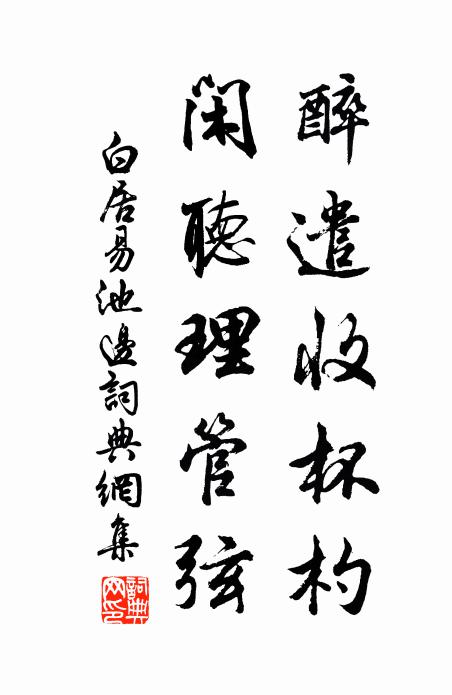 醉遣收杯杓
閑聽理管弦
白居易池邊詞典網集
詞典網印